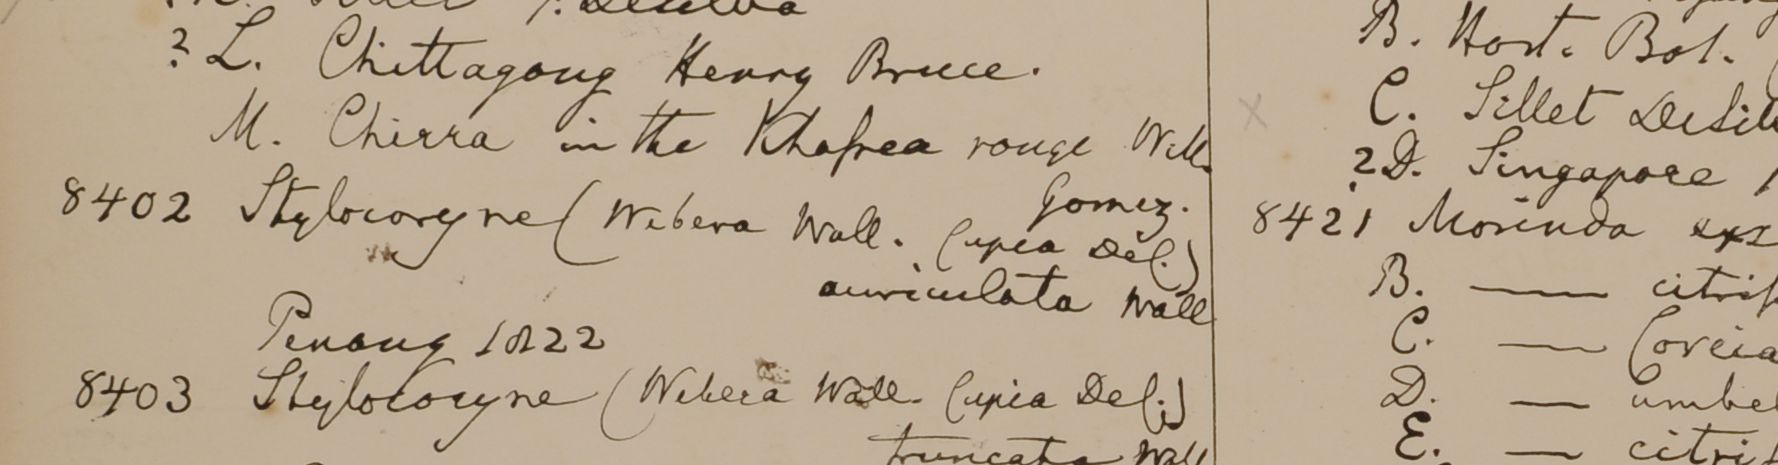 Desilva
? L. Chittagong Henry Bruce.
M. Chirra in the Khasiea range Wall.
Gomez.
8402 Stylocoryne (Webera Wall. Cupia Del.)
auriculata Wall
Penang 1822
8403 Stylocoryne (Webera Wall. Cupia Del.)
truncata Wall
B. Hort. Bot.
C. Sillet Desil
? D. Singapore
8421 Morinda
B. — citrif
C. — Coreia
D. — umbel
E. — citrif